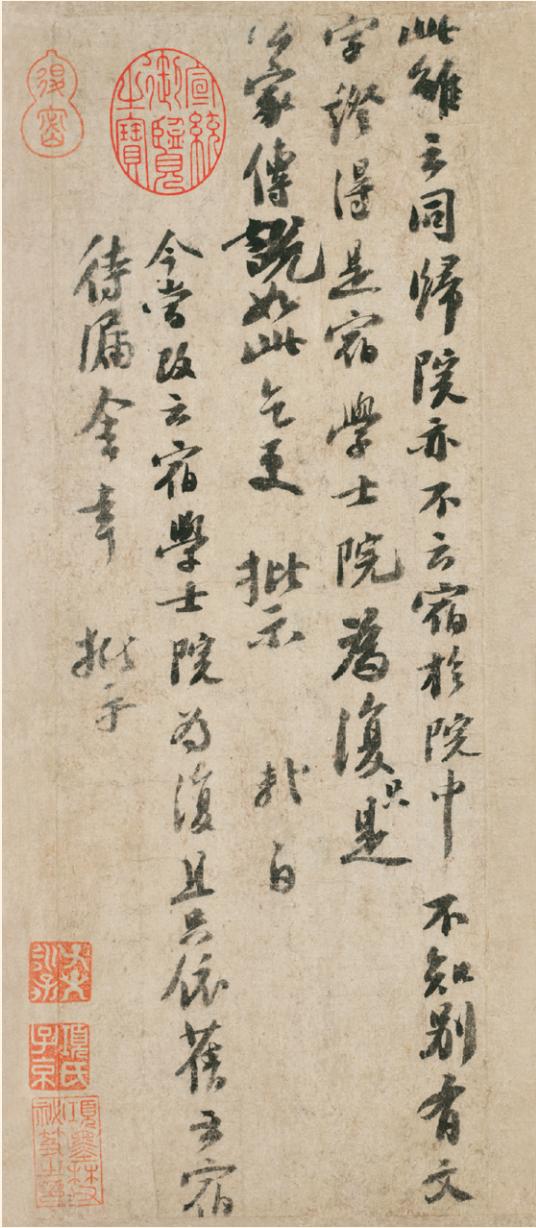 此雖云同歸院亦不云宿於院中 不知別有文
字證得是宿學士院為復只是
公家傳說如此乞更 批示 軾白
今當改云宿學士院為復且只依舊云宿
待漏舍幸 批示
宣統御覽之寶
退密
項氏子京
項墨林祕笈之章